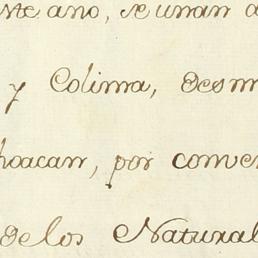 ste ano, se unan a
y Colima, desm
hoacan, por conve
delos Natural